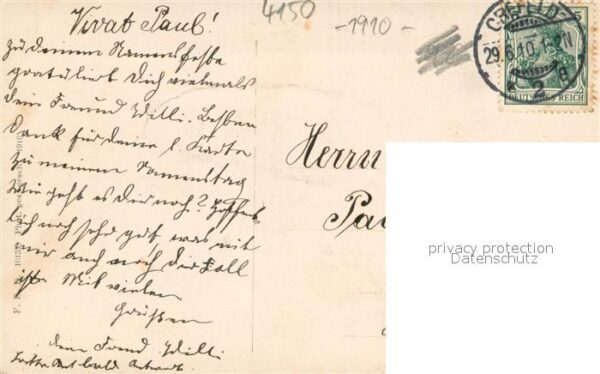 4150
-1910-
CREFELD
29.6.10.
* 2 a
DEUTSCHES REICH
Vivat Paul!
zu Deinem Namensfeste
gratuliert Dich vielmals
dein Freund Willi. Besten
Dank für deine l. Karte
zu meinem Namenstag
Wie geht es Dir noch? Hoffent-
lich noch sehr gut, was mit
mir auch noch der Fall
ist. Mit vielen
Grüßen
dein Freund Willi
bald
Herrn
Pau
privacy protection
Datenschutz